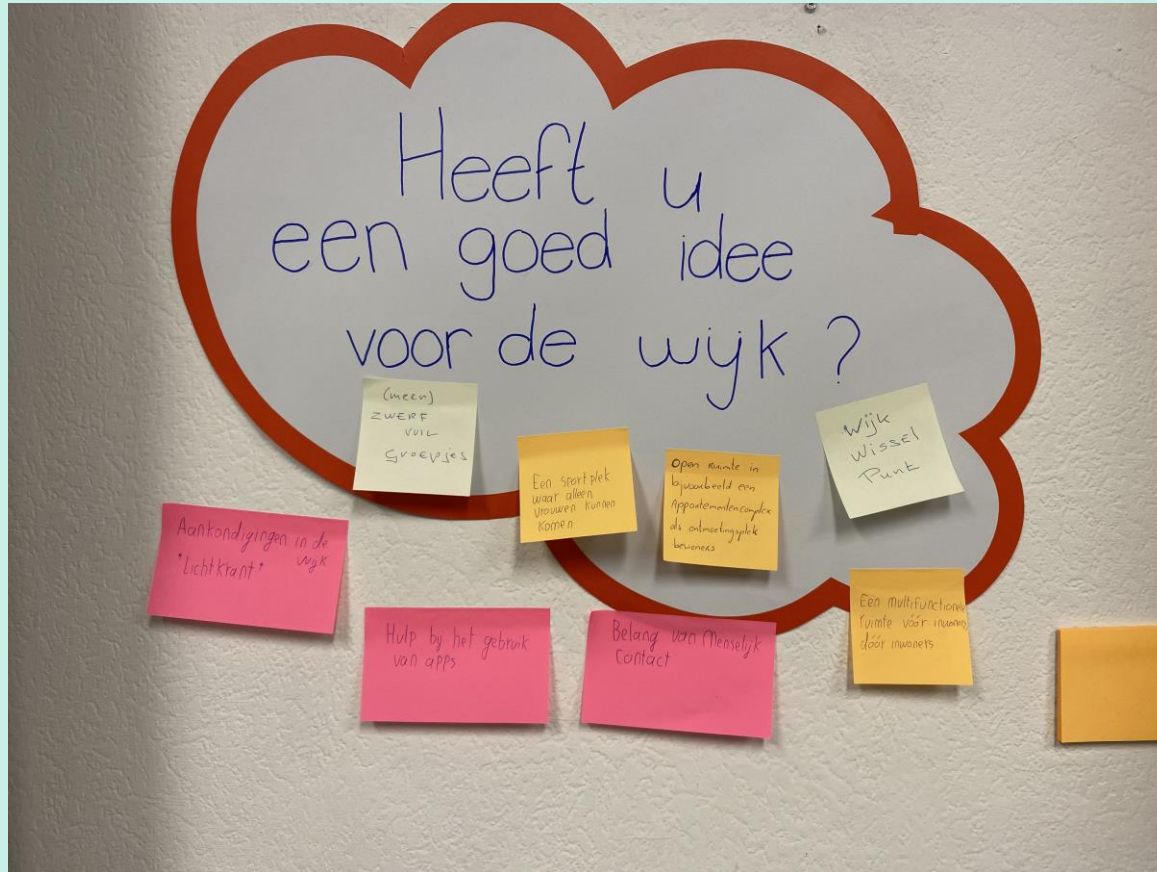 Heeft u
een goed idee
voor de wijk ?
(meer)
ZWERF
VUIL
Groepjes
Een sportplek
waar alleen
vrouwen kunnen
komen
Open ruimte in
bijvoorbeeld een
Appartementencomplex
als ontmoetingsplek
bewoners
Wijk
Wissel
Punt
Aankondigingen in de
wijk
"Lichtkrant"
Hulp bij het gebruik
van apps
Belang van Menselijk
Contact
Een multifunctionele
ruimte vóór inwoners
dóór inwoners